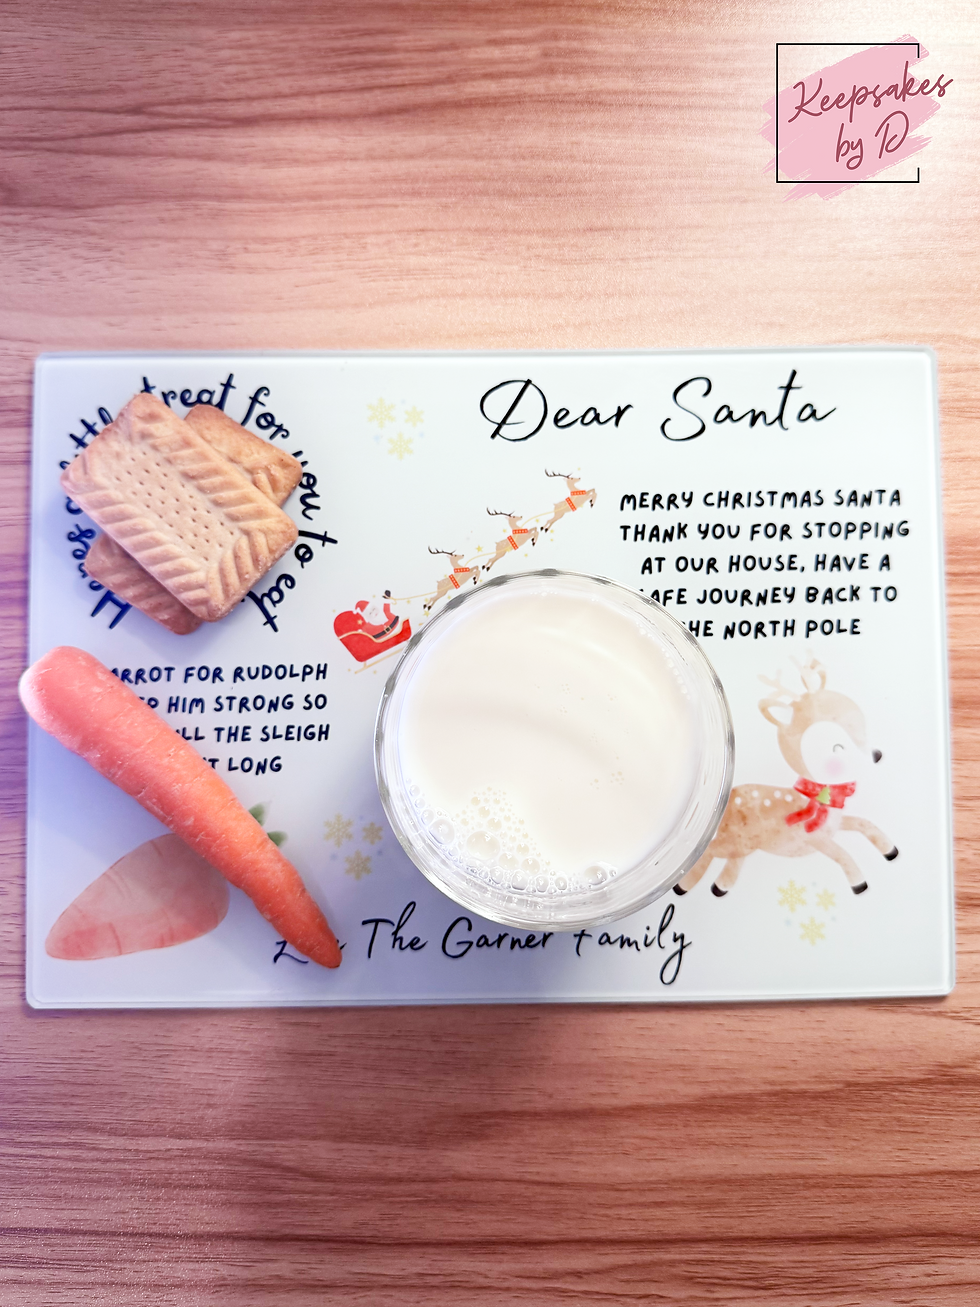 Keepsakes
by D
treat for you to eat
Dear Santa
MERRY CHRISTMAS SANTA
THANK YOU FOR STOPPING
AT OUR HOUSE, HAVE A
AFE JOURNEY BACK TO
HE NORTH POLE
ARROT FOR RUDOLPH
HIM STRONG SO
LL THE SLEIGH
T LONG
The Garner Family